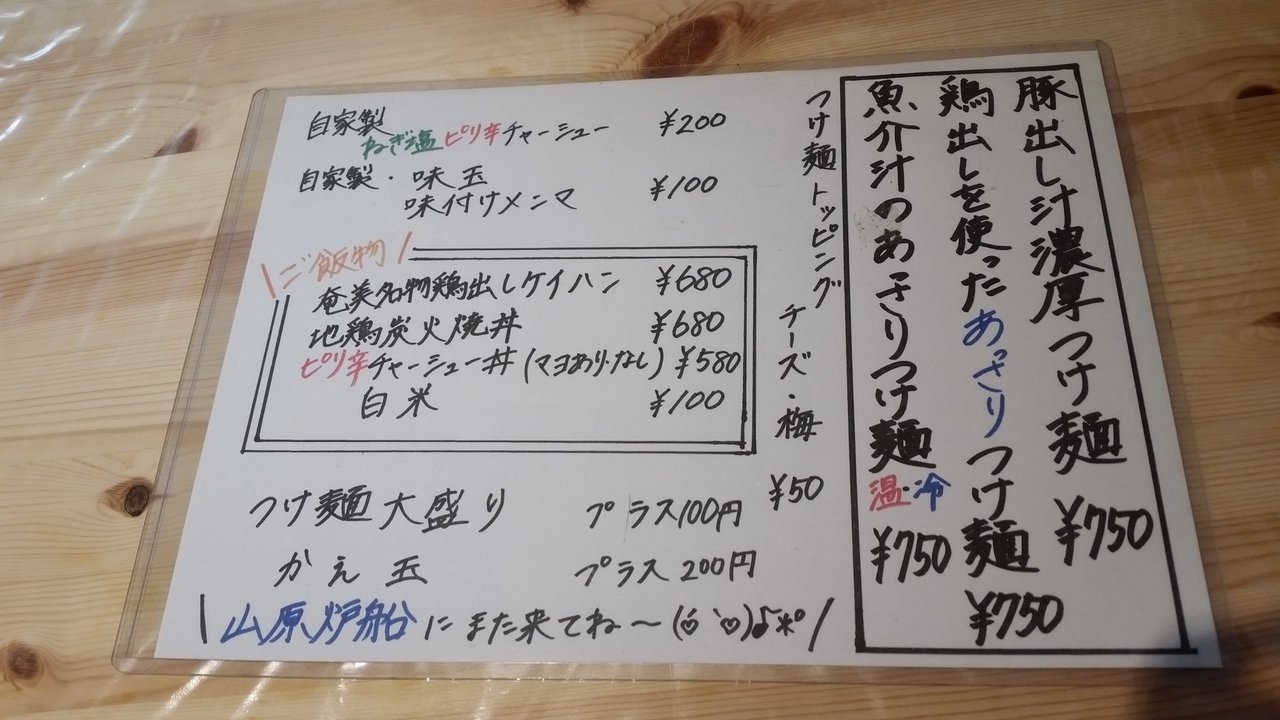 豚出し汁濃厚つけ麺 ¥750
鶏出しを使ったあっさりつけ麺 ¥750
魚介汁のあっさりつけ麺 温・冷 ¥750
つけ麺トッピング
チーズ・梅 ¥50
自家製
ねぎ塩 ピリ辛チャーシュー ¥200
自家製・味玉
味付けメンマ ¥100
\ご飯物/
奄美名物鶏出しケイハン ¥680
地鶏炭火焼丼 ¥680
ピリ辛チャーシュー丼(マヨあり・なし) ¥580
白米 ¥100
つけ麺大盛り プラス100円
かえ玉 プラス200円
\山原炉船にまた来てね〜